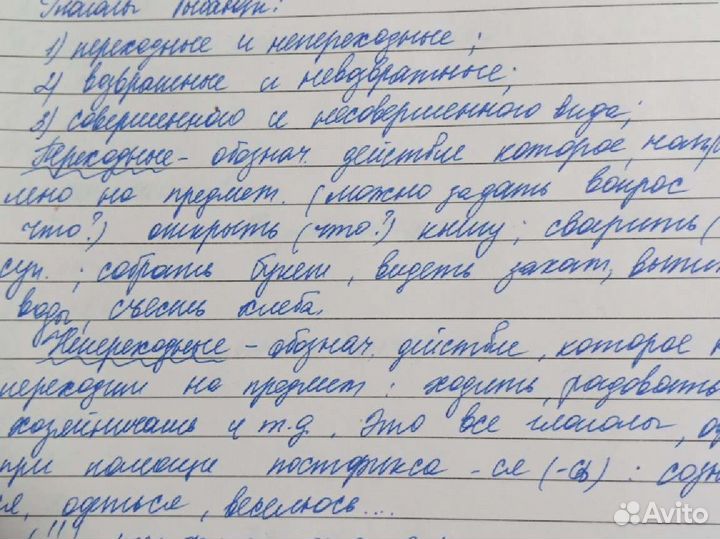 Глаголы бывают:
1) переходные и непереходные;
2) возвратные и невозвратные;
3) совершенного и несовершенного вида;
Переходные - обознач. действие которое, напр
лено на предмет. (можно задать вопрос
что?) открыть (что?) книгу; сварить (
суп. ; собрать букет, видеть закат, выпи
воды, съесть хлеба.
Непереходные - обознач. действие, которое н
переходит на предмет : ходить, радовать
хозяйничать и т.д. Это все глаголы, о
при помощи постфикса -ся (-сь) : созн
ся, одеться, веселюсь...
(!!!)
Avito